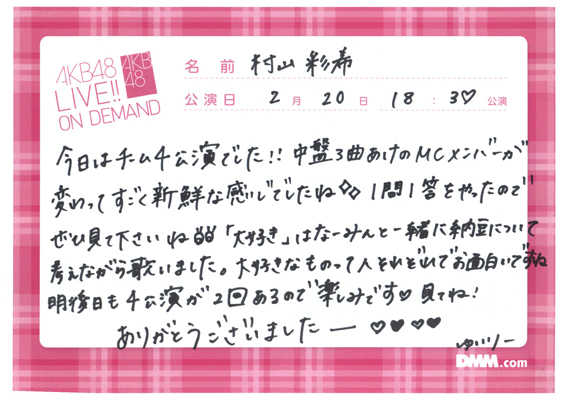 AKB48
LIVE!!
ON DEMAND
AKB
48
名前 村山彩希
公演日 2月20日 18:30公演
今日はチーム4公演でした!! 中盤3曲あけのMCメンバーが
変わってすごく新鮮な感じでしたね 1問1答をやったので
ぜひ見て下さいね 「大好き」はなーみんと一緒に納豆について
考えながら歌いました。大好きなものって人それぞれでお面白いですね
明後日も4公演が2回あるので楽しみです♡見てね!
ありがとうございましたー ♥♥♥♥
ゆいりー
DMM.com